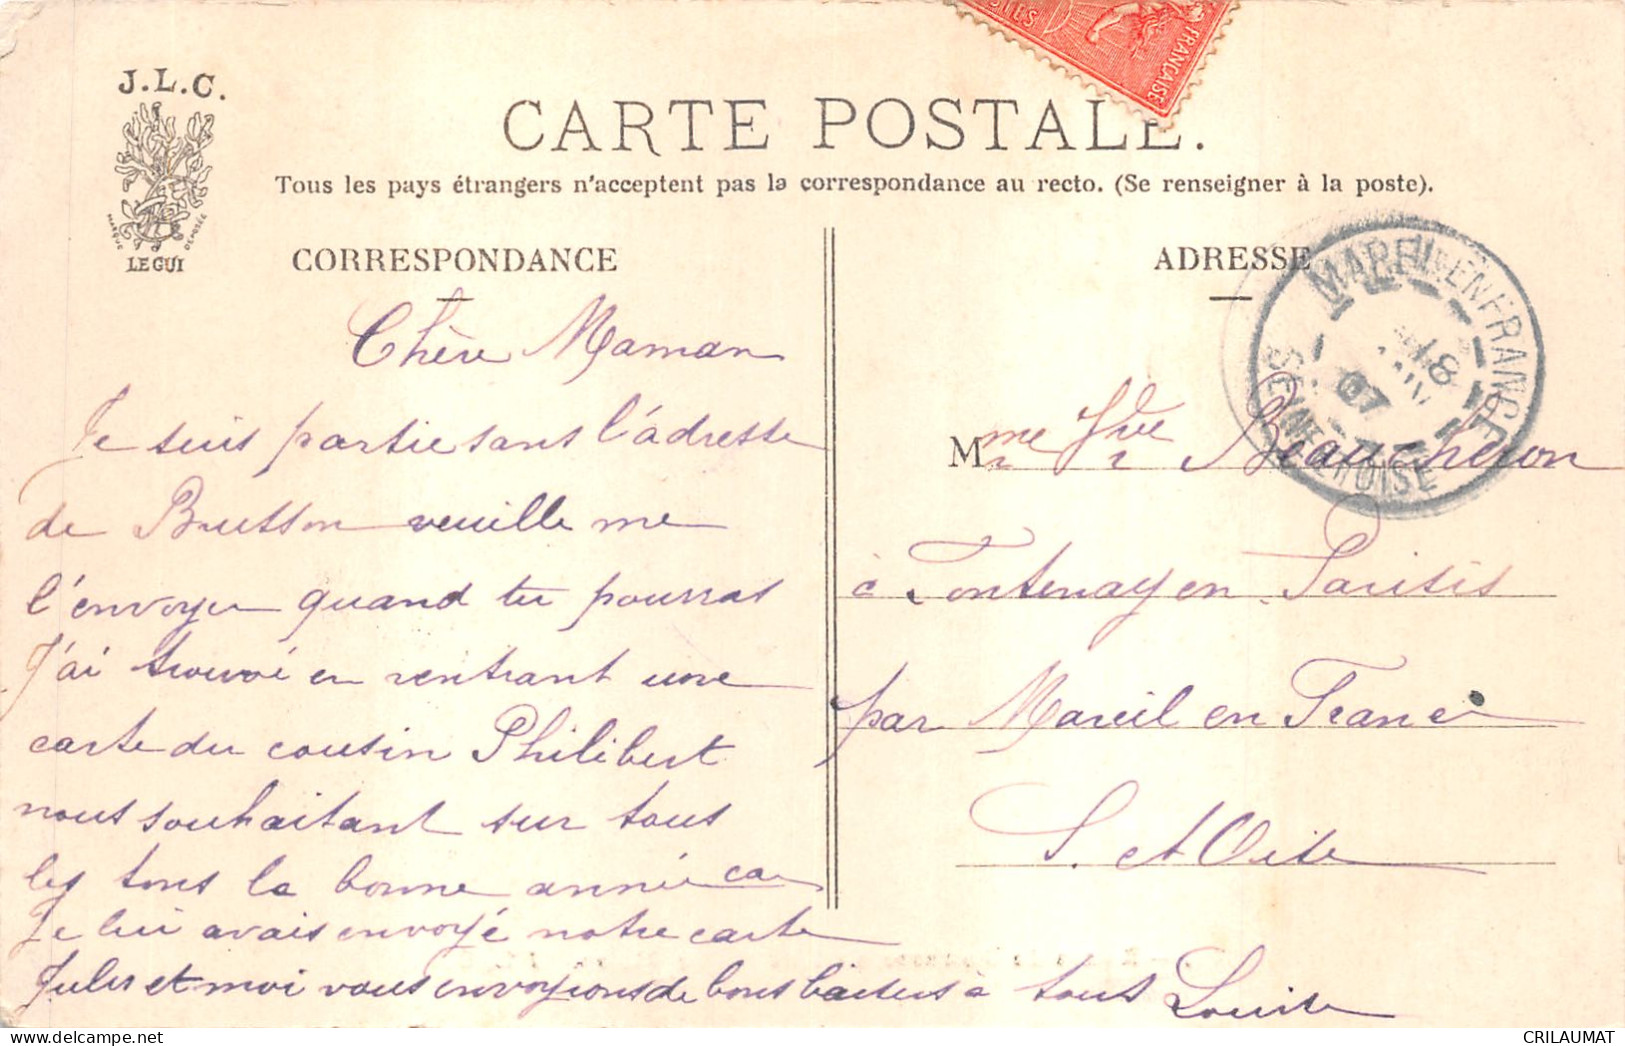 J.L.C.
MARQUE DEPOSÉE
LE GUI
FRANCAISE
CARTE POSTALE.
Tous les pays étrangers n'acceptent pas la correspondance au recto. (Se renseigner à la poste).
CORRESPONDANCE
Chère Maman
Je suis partie sans l'adresse
de Brusson veuille me
l'envoyer quand tu pourras
J'ai trouvé en rentrant une
carte du cousin Philibert
nous souhaitant sur tous
les tons la bonne année car
Je lui avais envoyé notre carte
Jules et moi vous envoyions de bons baisers à tous Louise
ADRESSE
MAREIL-EN-FRANCE
18
07
SEINE-ET-OISE
Mme Vve Beaucheron
à Fontenay en Parisis
par Mareil en France
S. et Oise
CRILAUMAT